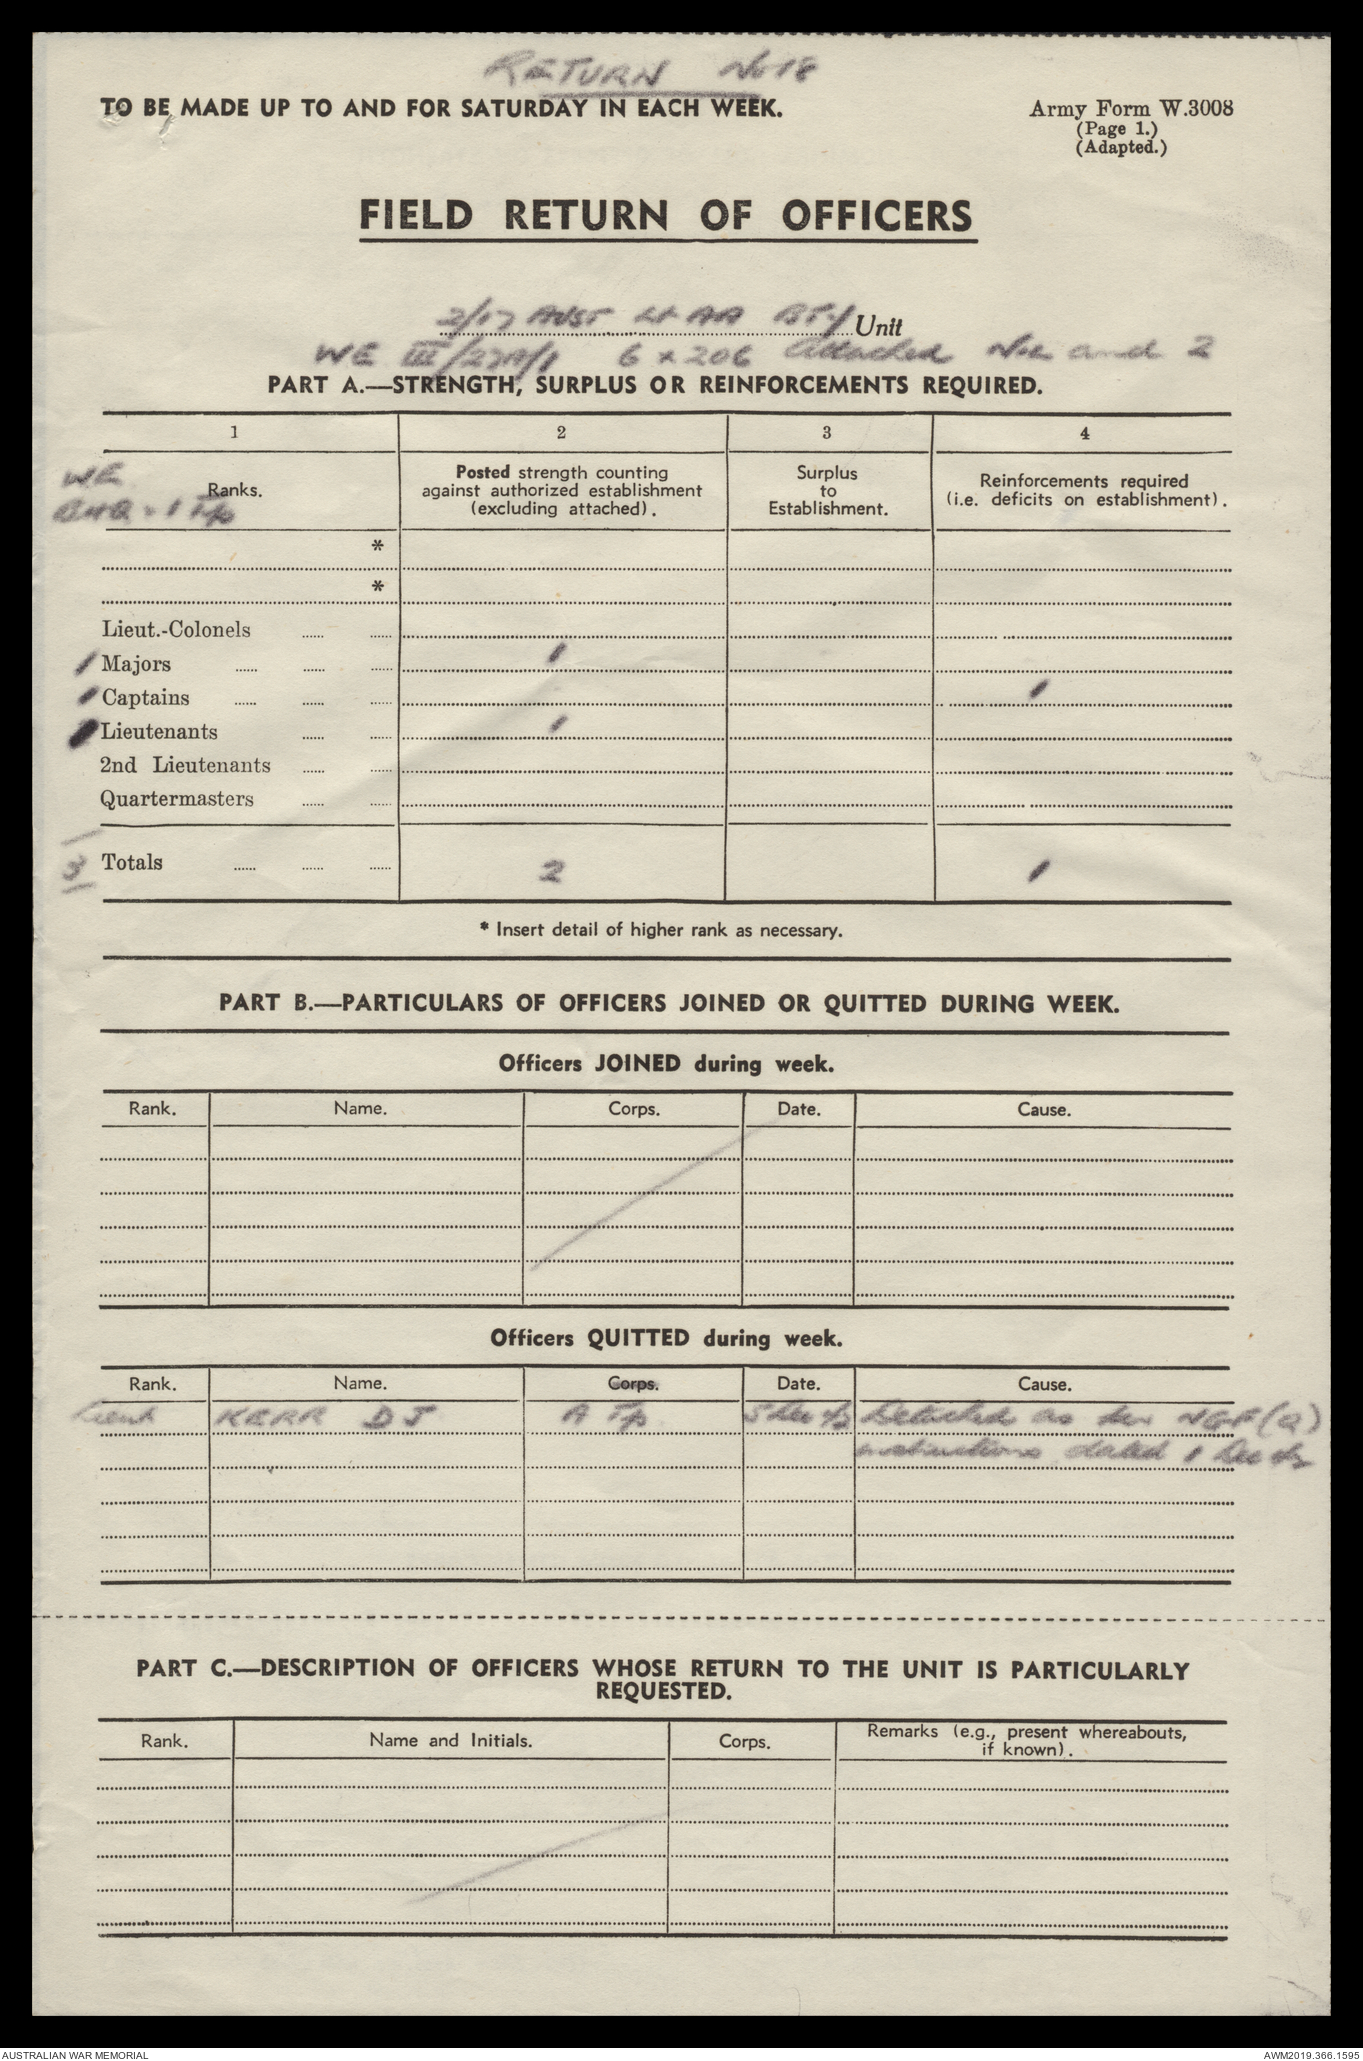 RETURN No 18
TO BE MADE UP TO AND FOR SATURDAY IN EACH WEEK.
Army Form W.3008
(Page 1.)
(Adapted.)
FIELD RETURN OF OFFICERS
2/17 AUST Lt AA BTY Unit
WE III/27A/1 6 x 206 attached and 2
PART A.—STRENGTH, SURPLUS OR REINFORCEMENTS REQUIRED.
1 2 3 4
WE
BHQ + 1 Tp
Ranks.
Posted strength counting
against authorized establishment
(excluding attached).
Surplus
to
Establishment.
Reinforcements required
(i.e. deficits on establishment).
*
*
Lieut.-Colonels
1 Majors 1
1 Captains 1
Lieutenants 1
2nd Lieutenants
Quartermasters
3 Totals 2 1
* Insert detail of higher rank as necessary.
PART B.—PARTICULARS OF OFFICERS JOINED OR QUITTED DURING WEEK.
Officers JOINED during week.
Rank. Name. Corps. Date. Cause.
Officers QUITTED during week.
Rank. Name. Corps. Date. Cause.
Lieut KERR D J A Tp 5 Dec 42 Detached as per NGF (a)
instructions dated 1 Dec 42
PART C.—DESCRIPTION OF OFFICERS WHOSE RETURN TO THE UNIT IS PARTICULARLY
REQUESTED.
Rank. Name and Initials. Corps. Remarks (e.g., present whereabouts,
if known).
AUSTRALIAN WAR MEMORIAL
AWM2019.366.1595